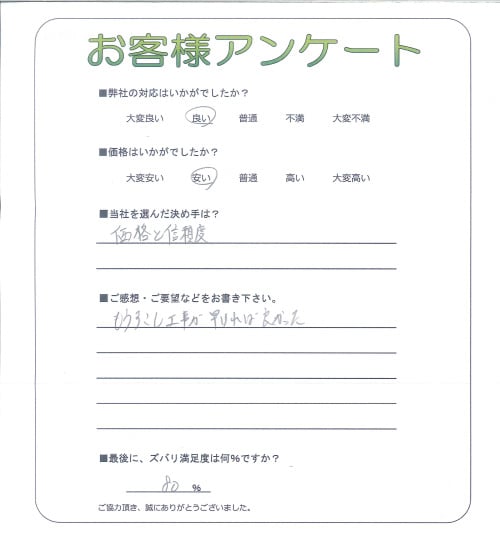 お客様アンケート
■弊社の対応はいかがでしたか?
大変良い 良い 普通 不満 大変不満
■価格はいかがでしたか?
大変安い 安い 普通 高い 大変高い
■当社を選んだ決め手は?
価格と信頼度
■ご感想・ご要望などをお書き下さい。
もう少し工事が早ければ良かった
■最後に、ズバリ満足度は何%ですか?
80 %
ご協力頂き、誠にありがとうございました。